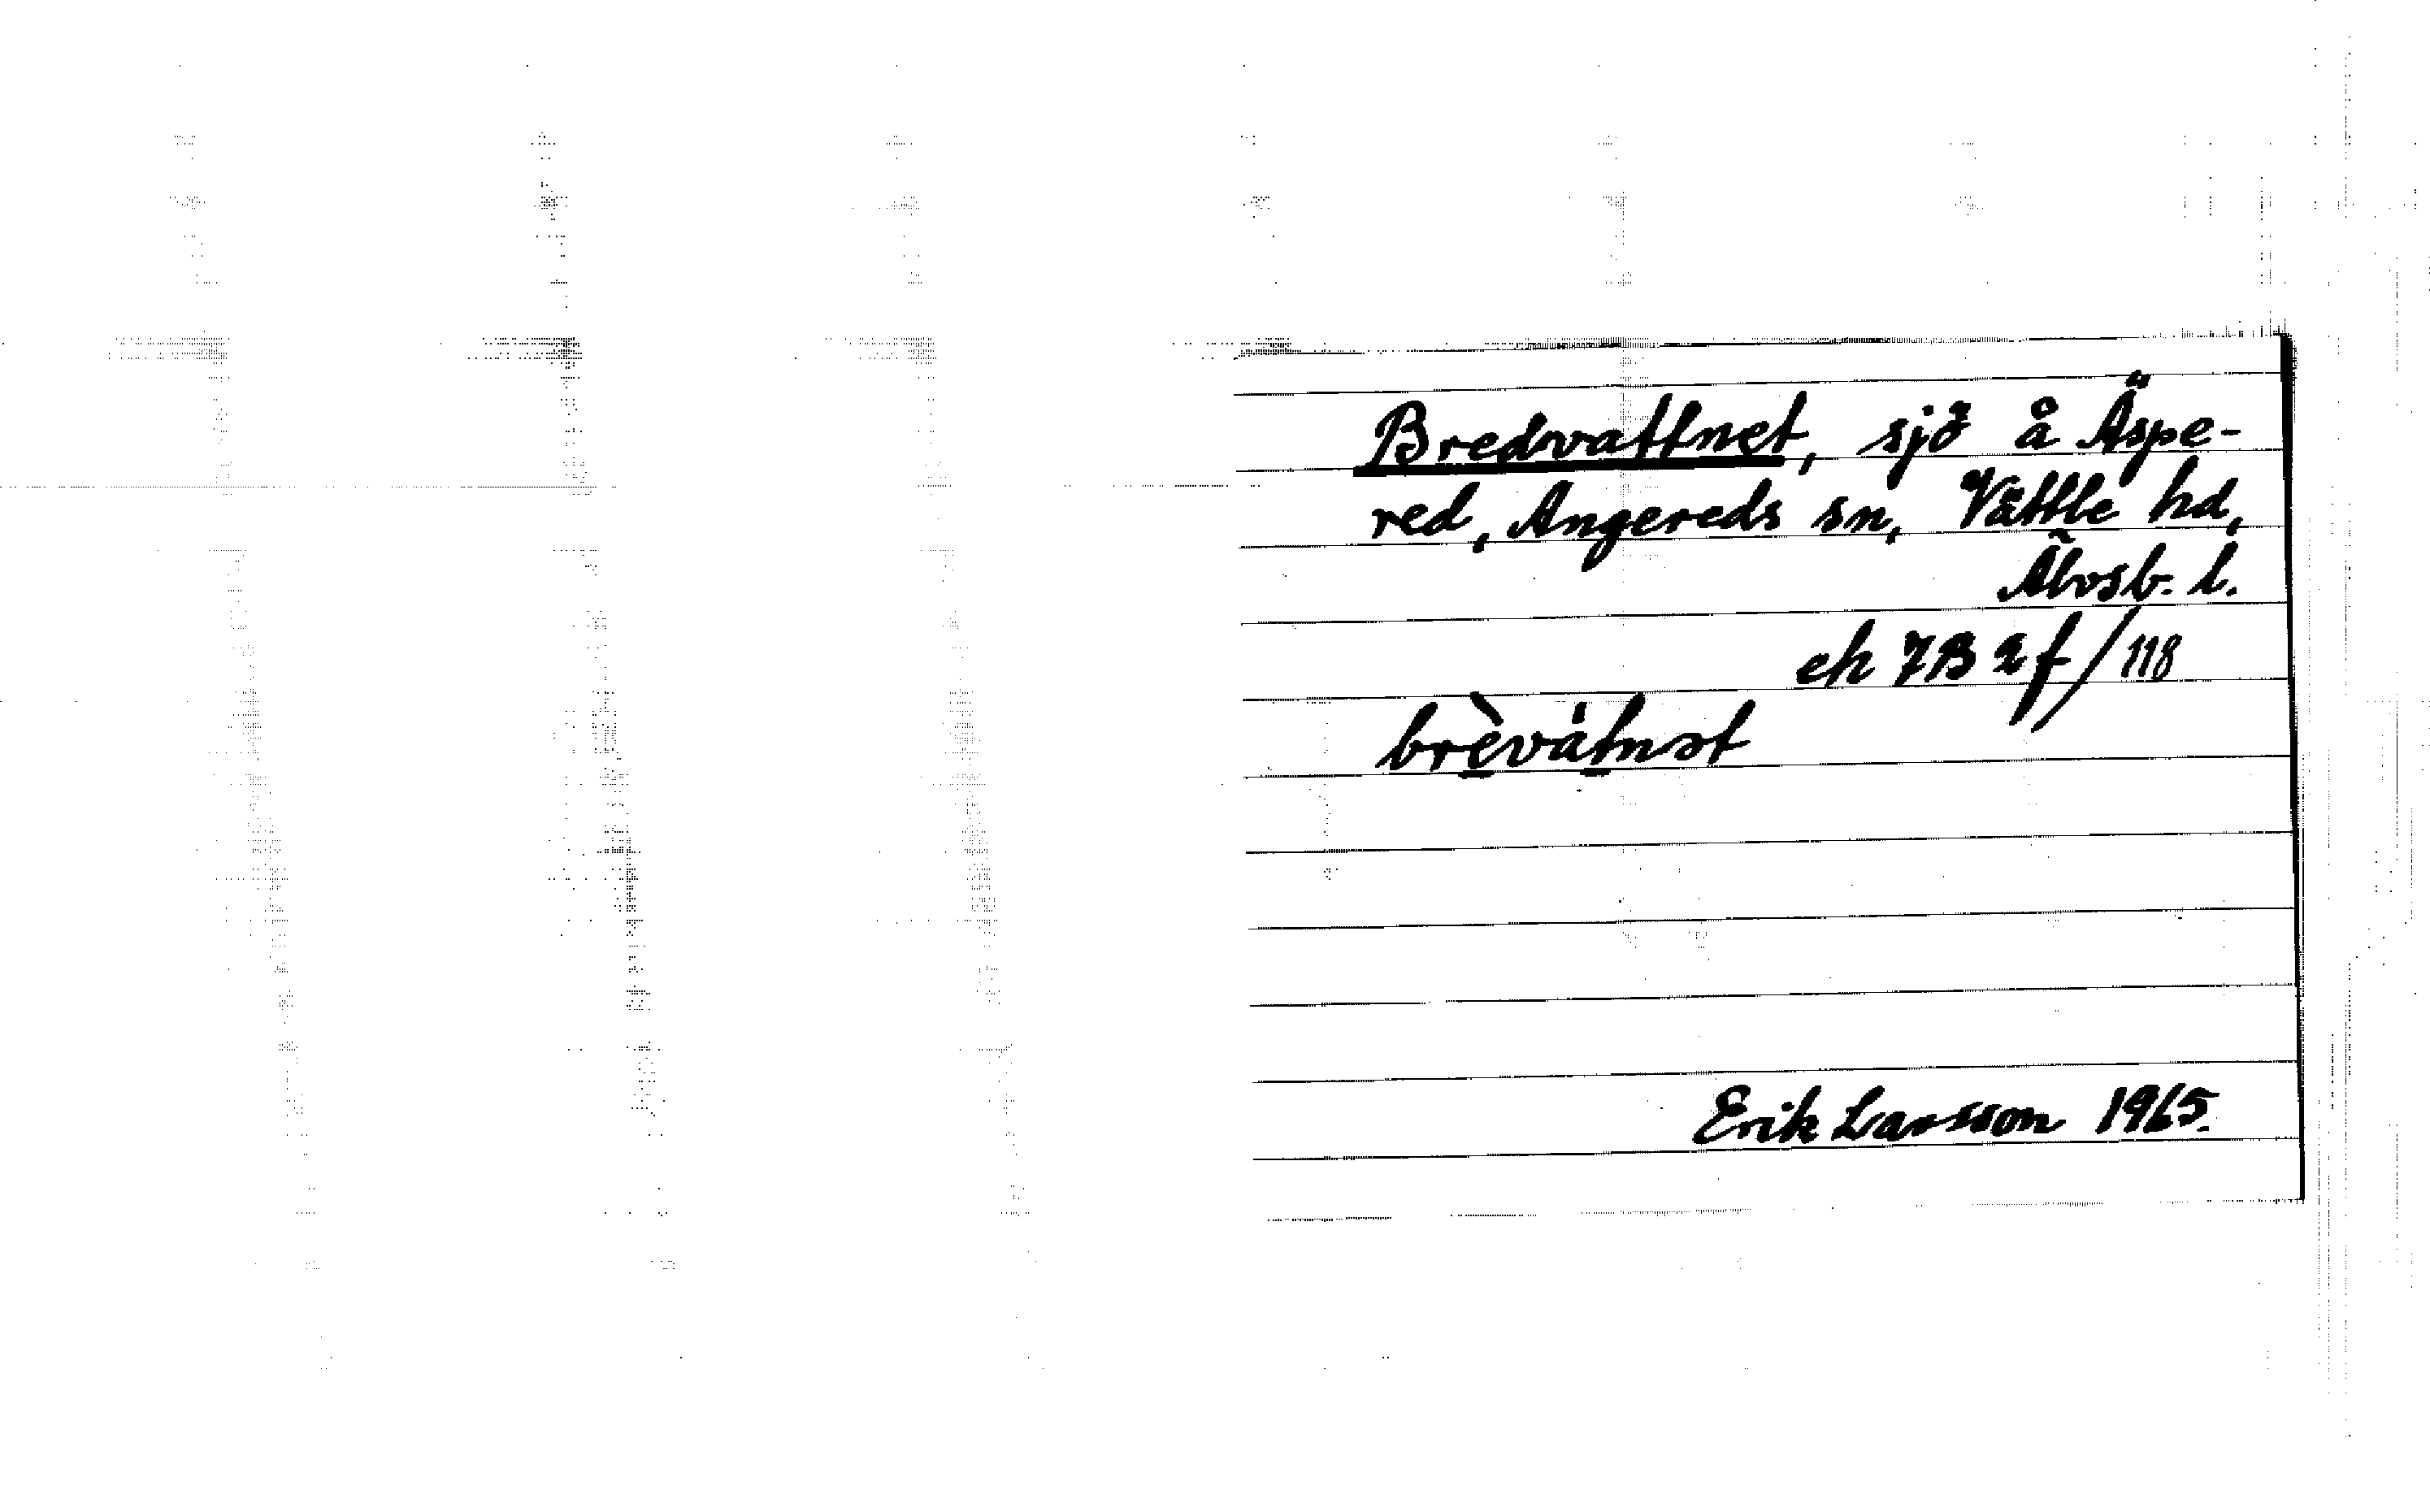 Bredvattnet, sjö å Äspe-
red, Angereds sn, Vättle hd,
Älvsb. l.
ek 7B 2f/118
brèvàtnət
Erik Larsson 1965.